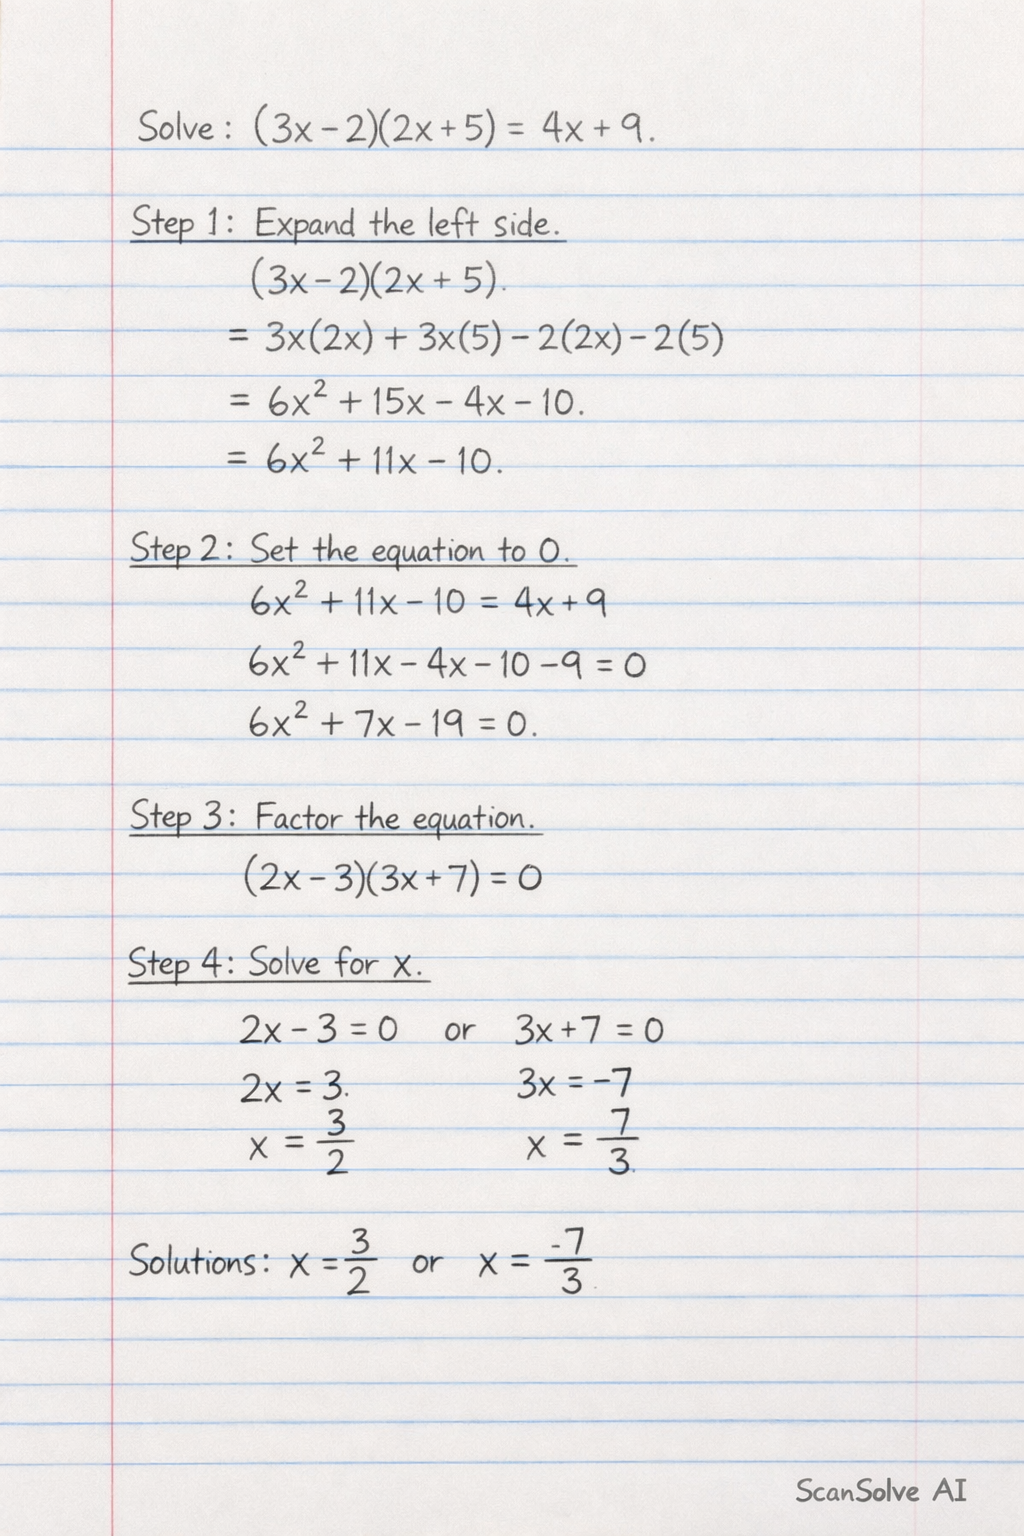 Solve: (3x - 2)(2x + 5) = 4x + 9.
Step 1: Expand the left side.
(3x - 2)(2x + 5).
= 3x(2x) + 3x(5) - 2(2x) - 2(5)
= 6x² + 15x - 4x - 10.
= 6x² + 11x - 10.
Step 2: Set the equation to 0.
6x² + 11x - 10 = 4x + 9
6x² + 11x - 4x - 10 - 9 = 0
6x² + 7x - 19 = 0.
Step 3: Factor the equation.
(2x - 3)(3x + 7) = 0
Step 4: Solve for x.
2x - 3 = 0 or 3x + 7 = 0
2x = 3. 3x = -7
x = 3/2 x = 7/3.
Solutions: x = 3/2 or x = -7/3
ScanSolve AI